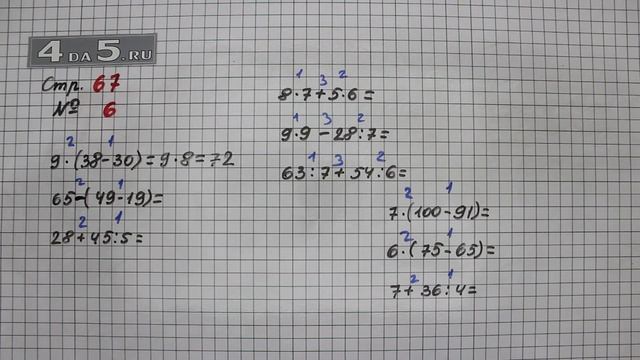 4 DA 5.RU
Стр. 67
№ 6
2 1
9·(38-30)=9·8=72
2 1
65-(49-19)=
2 1
28+45:5=
1 3 2
8·7+5·6=
1 3 2
9·9-28:7=
1 3 2
63:7+54:6=
2 1
7·(100-91)=
2 1
6·(75-65)=
2 1
7+36:4=